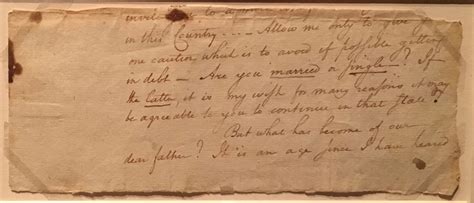 to a
in this Country.... Allow me only to give
one caution, which is to avoid if possible getting
in debt - Are you married or single? If
the latter, it is my wish for many reasons it may
be agreeable to you to continue in that state?
But what has become of our
dear father? It is an age since I have heared